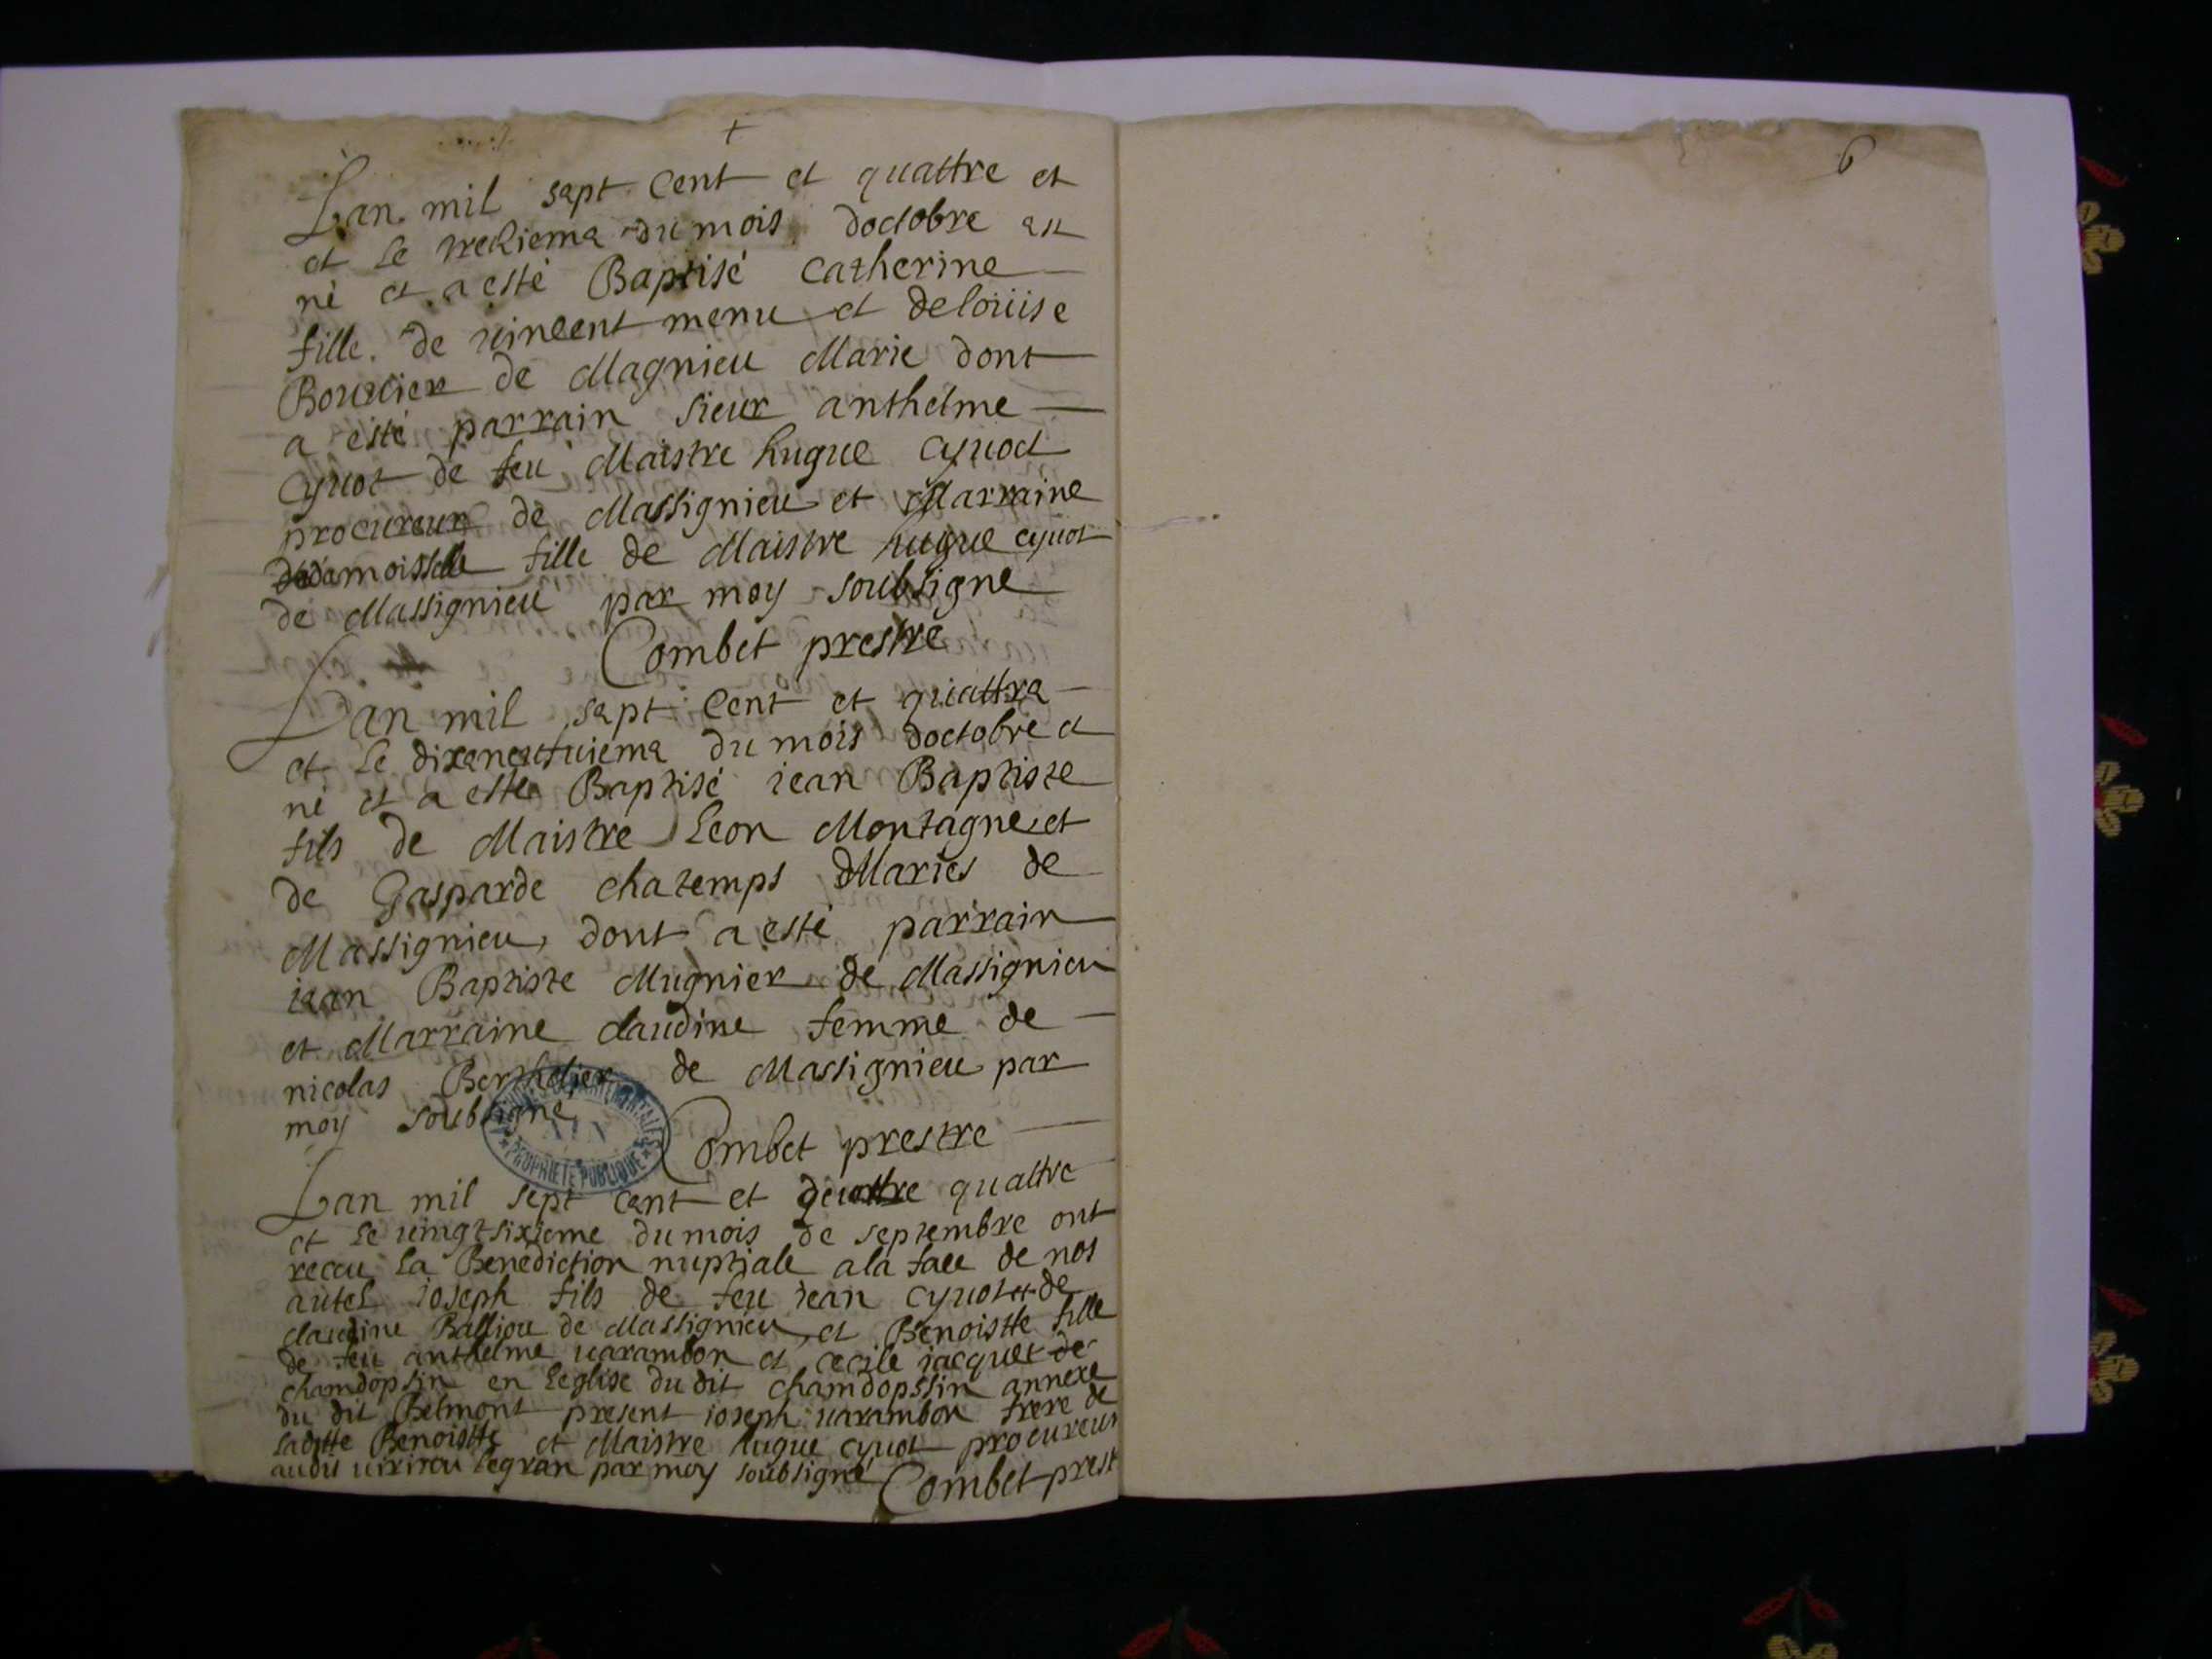 Lan mil sept Cent et quattre et
et le treKieme du mois doctobre est
né et a esté Baptisé Catherine
fille de vincent menu et de loüise
Bouvier de Magnieu Marie dont
a esté parrain sieur anthelme
Cyuot de feu Maistre hugue Cyuot
procureur de Massignieu et Marraine
damoiselle fille de Maistre hugue cyuot
de Massignieu par moy soubsigne
Combet prestre
Lan mil sept Cent et quattre
et le dixeneufuieme du mois doctobre et
né et a este Baptisé iean Baptiste
fils de Maistre Leon Montagne et
de Gasparde chatemps Maries de
Massignieu, dont a esté parrain
iean Baptiste Mugnier de Massignieu
et Marraine claudine femme de
nicolas Berthelier de Massignieu par
moy soubsigne
PROPRIETE PUBLIQUE
Combet prestre
Lan mil sept cent et quattre
et le uingtsixieme du mois de septembre ont
receu la Benediction nuptiale a la face de nos
autel ioseph fils de feu iean Cyuot et de
claudine Balliou de Massignieu et Benoistte fille
de feu anthelme uarambon et cecile iacquet de
chamdopsin en leglise du dit chamdopssin annexe
du dit Belmont present ioseph uarambon frere de
laditte Benoistte et Maistre hugue cyuot procureur
audit uirieu legran par moy soubsigné Combet prest
6